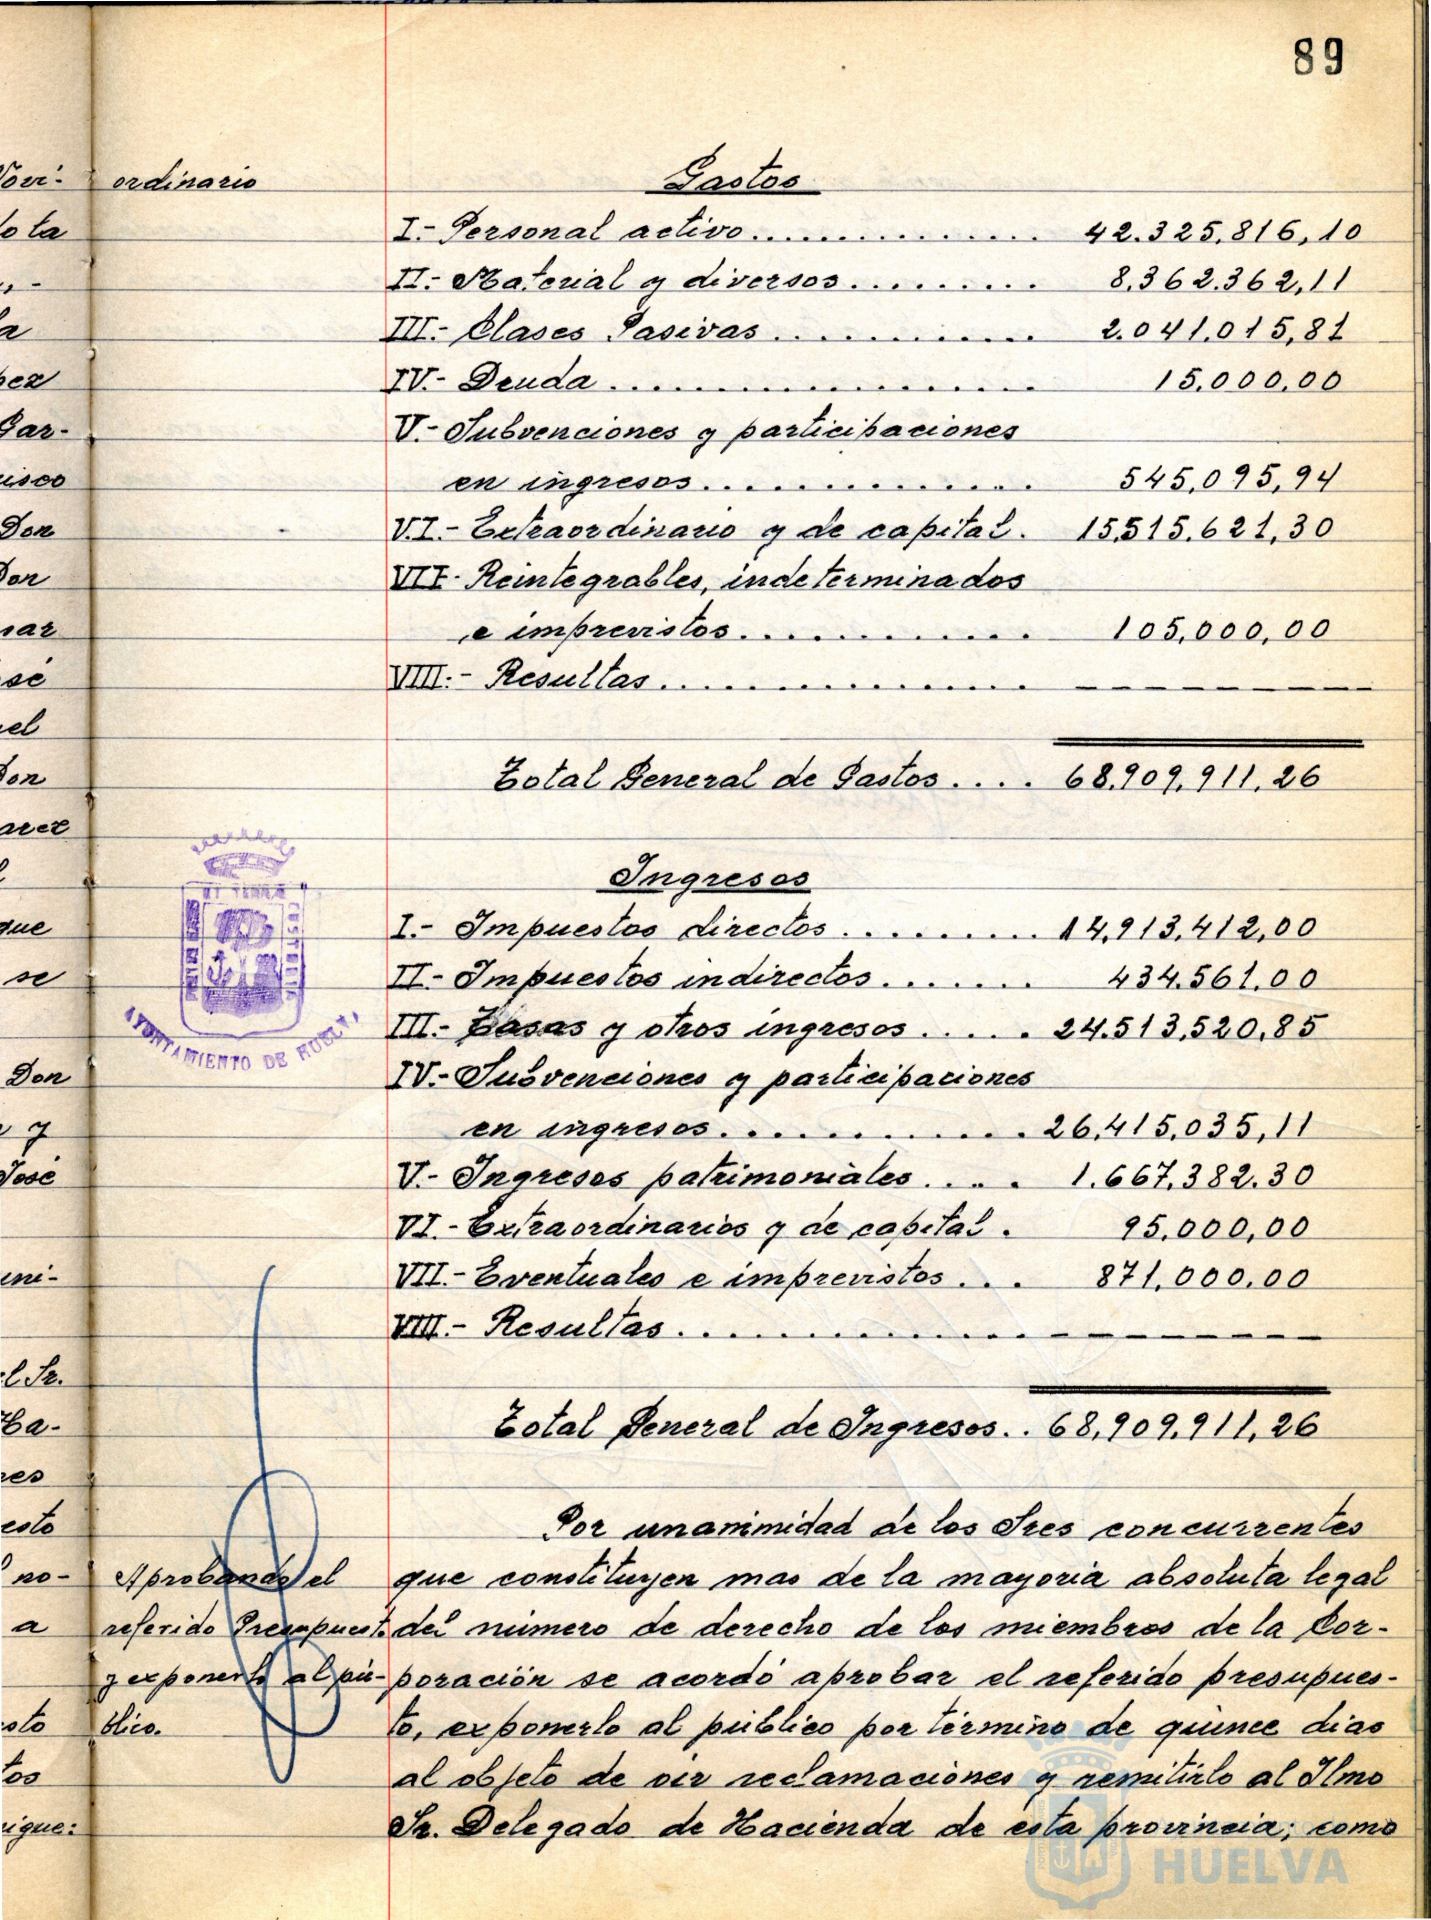 89
Gastos
ordinario
I.- Personal activo............... 42.325,816,10
II.- Material y diversos.......... 8,362.362,11
III.- Clases Pasivas............. 2.041.015,81
IV.- Deuda.................. 15,000,00
V.- Subvenciones y participaciones
en ingresos............... 545,095,94
V.I.- Extraordinario y de capital. 15,515.621,30
VII- Reintegrables, indeterminados
e imprevistos............. 105,000,00
VIII.- Resultas................ ---------
Total General de Gastos.... 68,909,911,26
Ingresos
I.- Impuestos directos......... 14,913,412,00
II.- Impuestos indirectos....... 434.561,00
III.- Tasas y otros ingresos..... 24.513,520,85
IV.- Subvenciones y participaciones
en ingresos............. 26,415,035,11
V.- Ingresos patrimoniales.... 1.667,382.30
VI.- Extraordinarios y de capital. 95,000,00
VII.- Eventuales e imprevistos... 871,000.00
VIII.- Resultas................ ---------
Total General de Ingresos.. 68,909,911,26
AYUNTAMIENTO DE HUELVA
Por unanimidad de los Sres concurrentes
que constituyen mas de la mayoria absoluta legal
del número de derecho de los miembros de la Cor-
poración se acordó aprobar el referido presupues-
to, exponerlo al público por término de quince dias
al objeto de oir reclamaciones y remitirlo al Ilmo
Sr. Delegado de Hacienda de esta provincia; como
Aprobando el
referido Presupuesto
y exponerlo al pú-
blico.
Novi-
lo ta
la
pez
Gar-
cisco
Don
Don
sar
sé
el
Don
arez
que
se
Don
n y
José
uni-
el Sr.
Ha-
res
esto
no-
a
sto
tos
sigue:
HUELVA